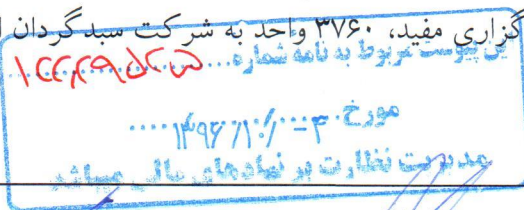 گزاری مفید، ۳۷۶۰ واحد به شرکت سبدگردان
این پیوست مربوط به نامه شماره....
مورخ ۱۳۹۶/۱۰/۰۳
مدیریت نظارت بر نهادهای مالی میباشد